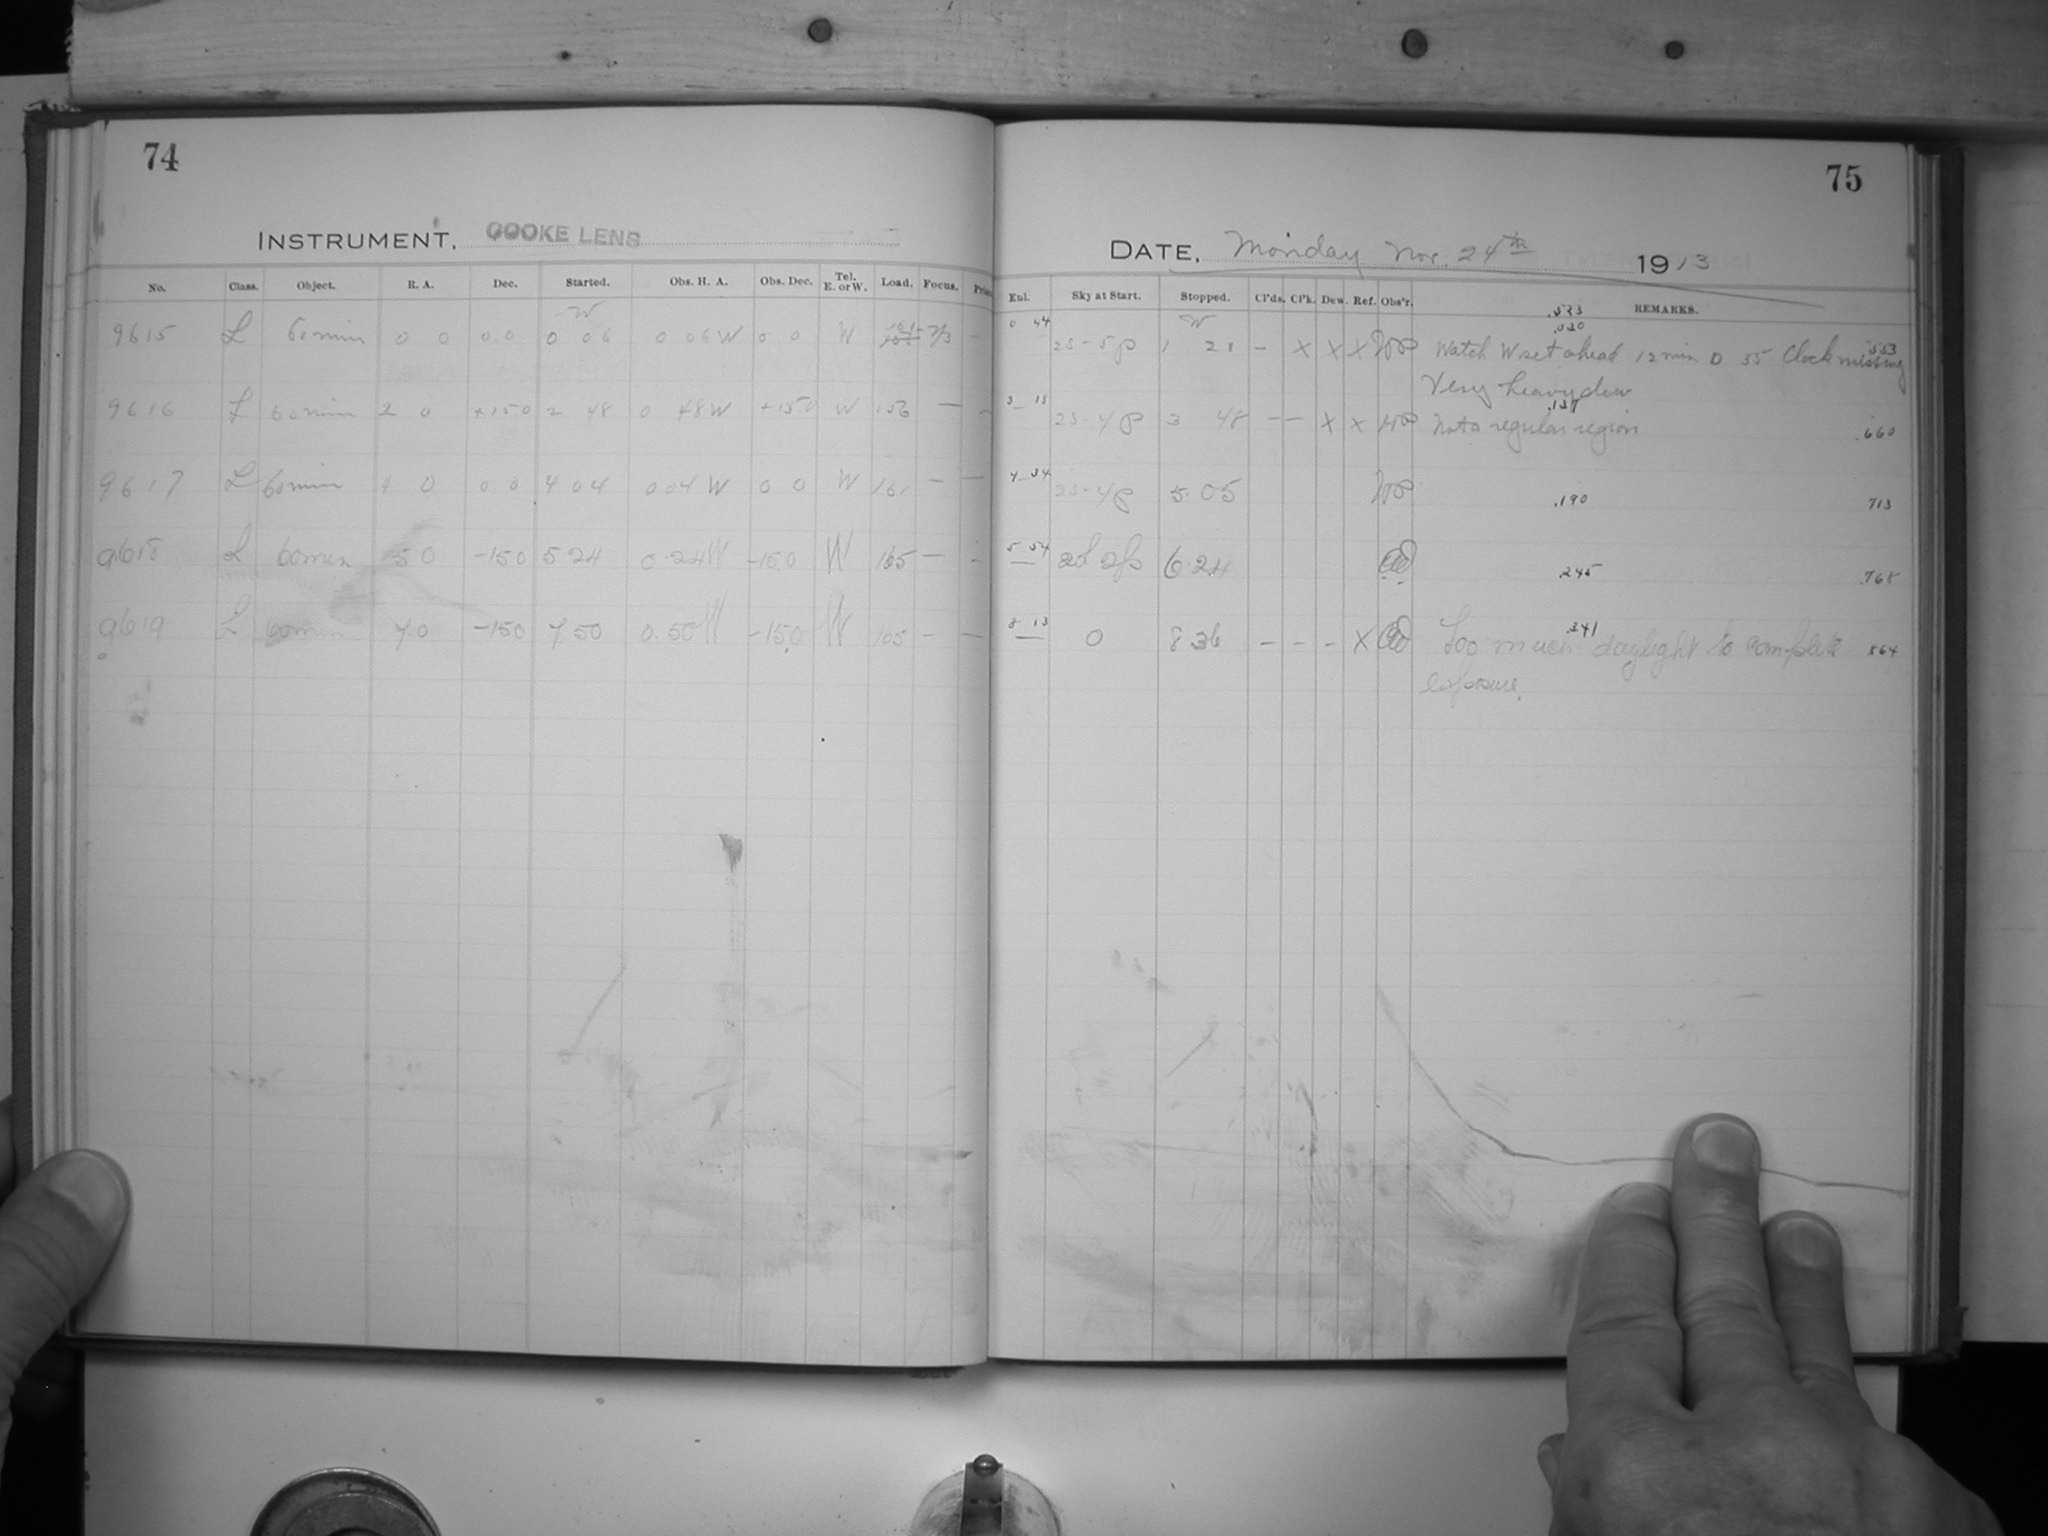 74
75
INSTRUMENT. COOKE LENS
DATE. Monday Nov. 24th 1913
No. Class. Object. R. A. Dec. Started. Obs. H. A. Obs. Dec. Tel. E. or W. Load. Focus.
Eul. Sky at Start. Stopped. Cl'ds. Cl'k. Dew. Ref. Obs'r. REMARKS.
W W .533
0 44 .530
9615 L 60 min 0 0 0.0 0 06 0 06 W 0 0 W 1 21 – X X X Watch W set ahead 12 min 0 55 Clock missing .553
Very heavy dew
3 18 .137
9616 L 60 min 2 0 +15.0 2 48 0 48 W +15.0 W 156 — 3 48 – – X X Not a regular region .660
4 34
9617 L 60 min 4 0 0.0 4 04 0 04 W 0 0 W 161 — — 5.05 .190 713
5 54
9618 L 60 min 5 0 -15.0 5 24 0.24 W -15.0 W 165 — 6 24 .245 .768
8 13 .341
9619 L 60 min 7.0 -15.0 7.50 0.50 W -15.0 W 165 – — 0 8 36 – – – X Too much daylight to complete 864
exposure.